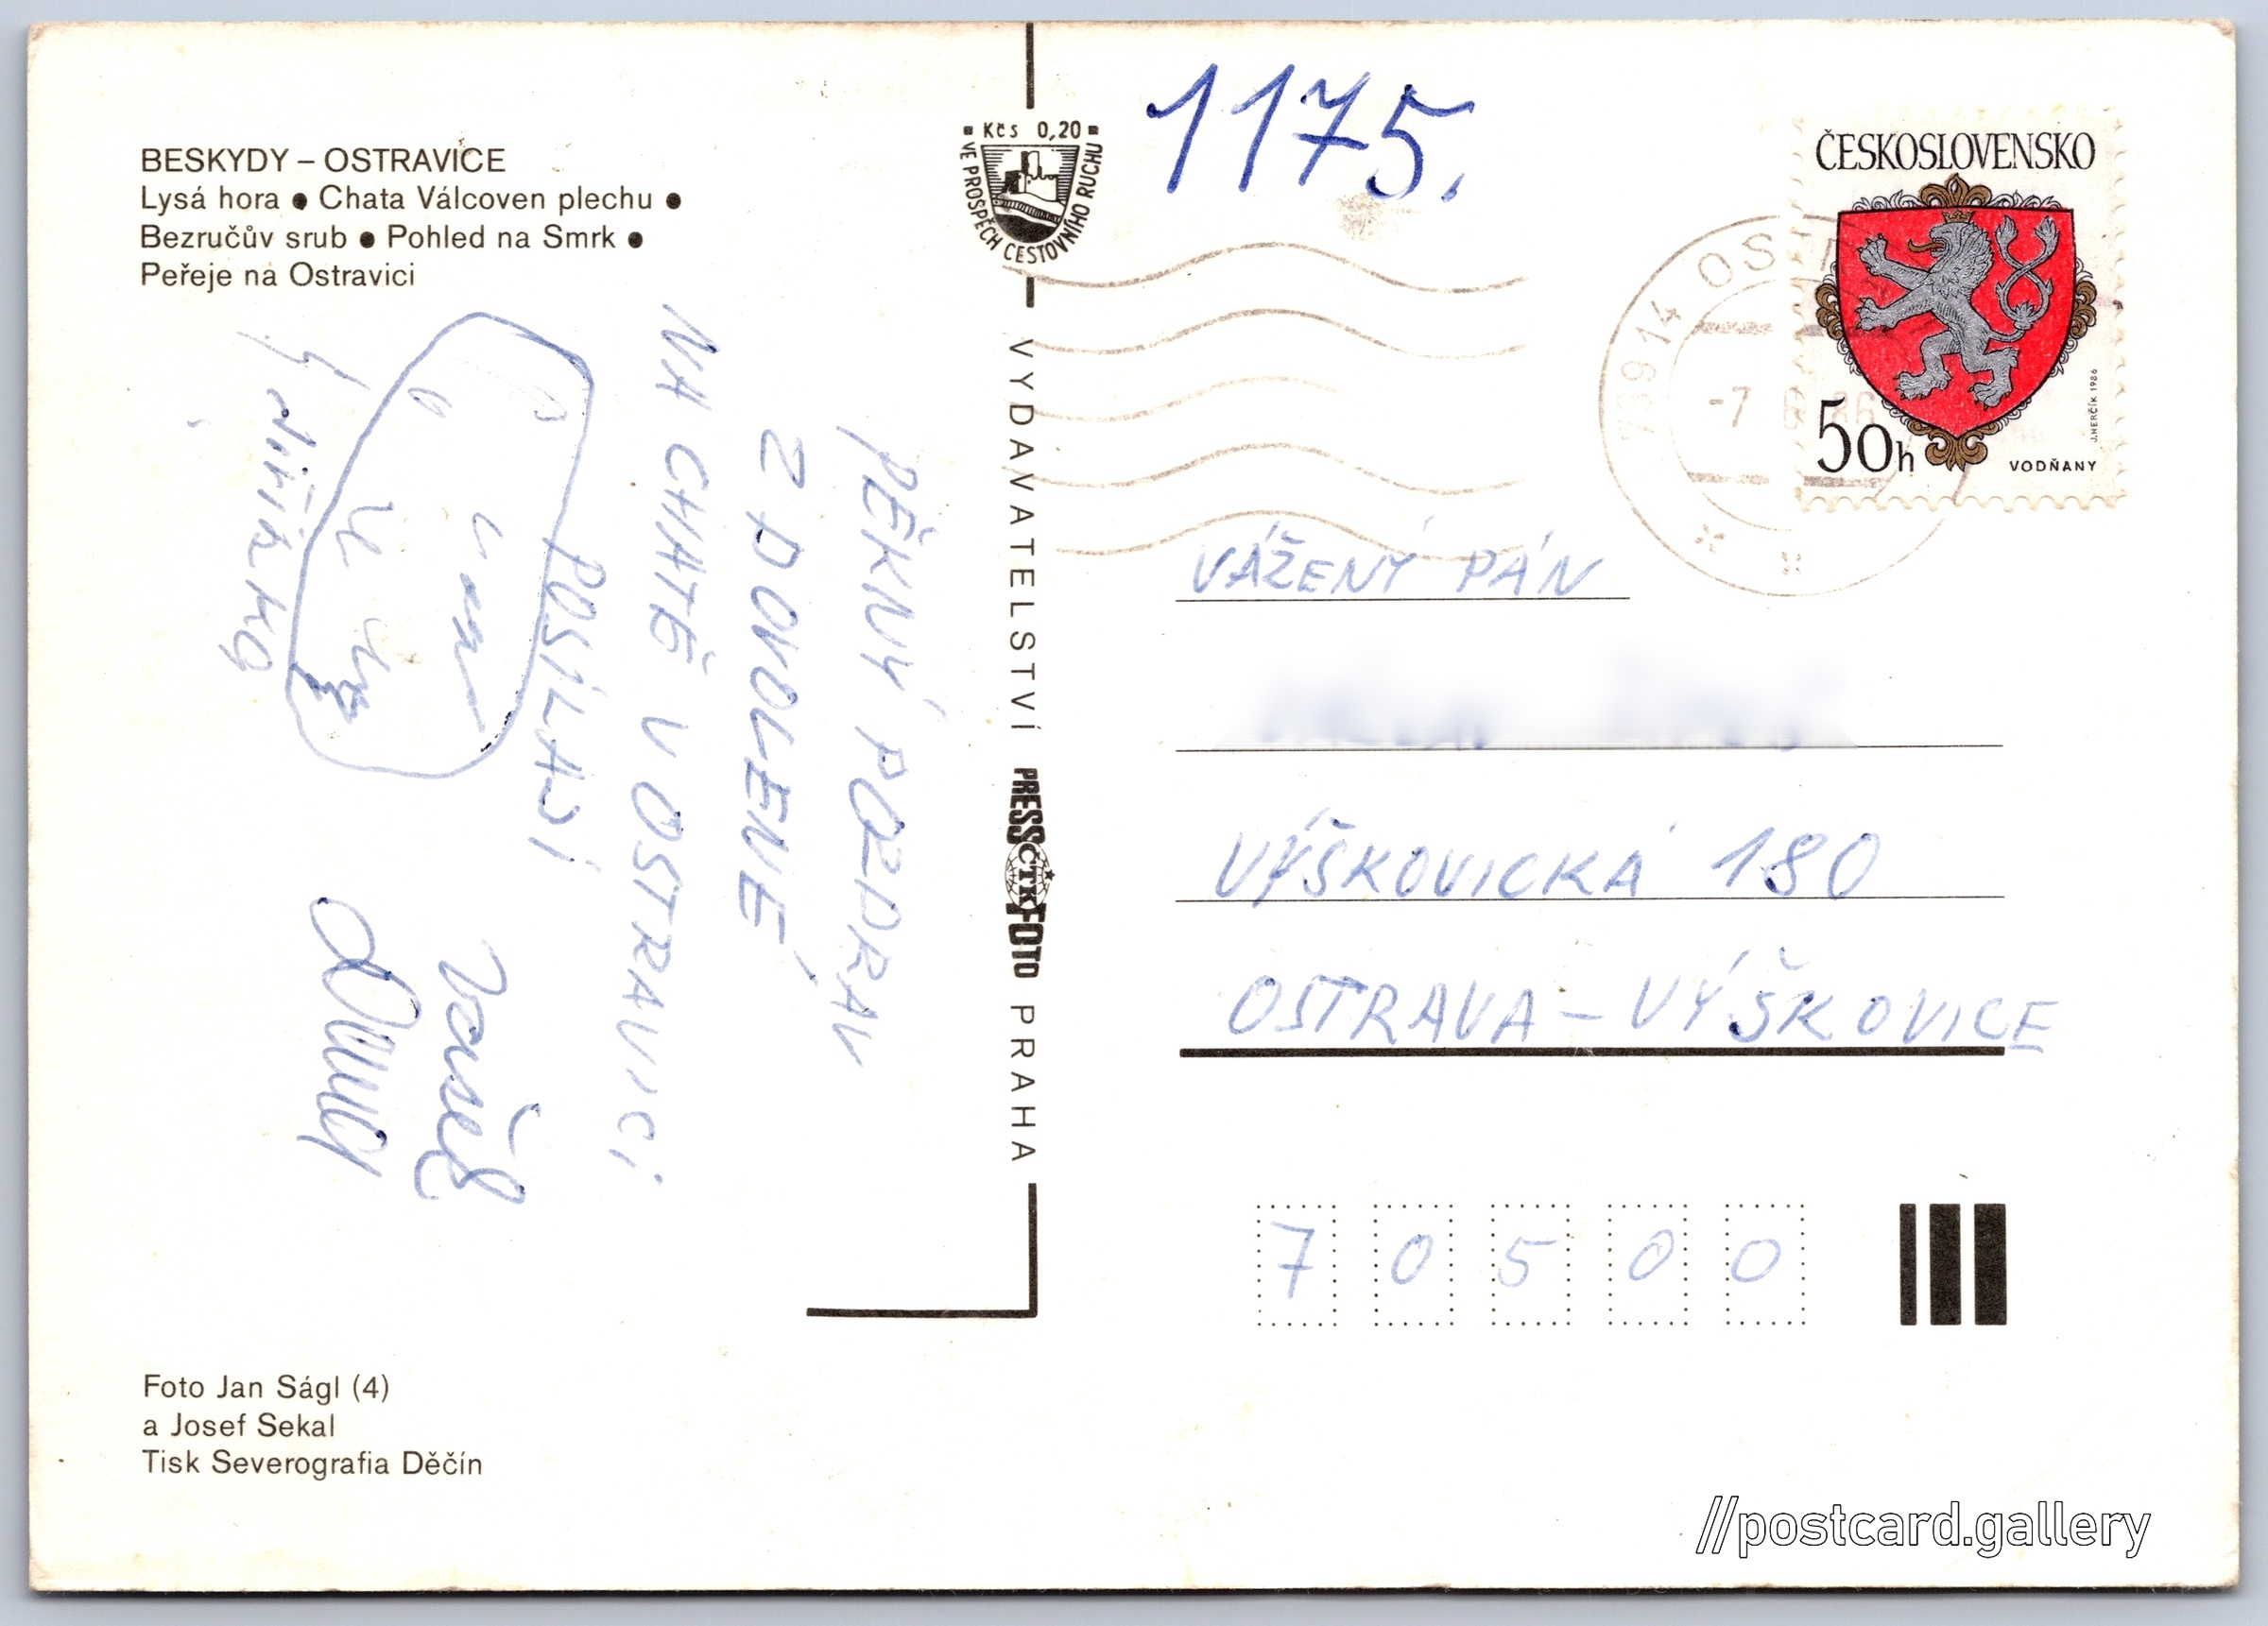 BESKYDY – OSTRAVICE
Lysá hora ● Chata Válcoven plechu ●
Bezručův srub ● Pohled na Smrk ●
Peřeje na Ostravici
PĚKNÝ POZDRAV
Z DOVOLENÉ
NA CHATĚ V OSTRAVICI
POSÍLAJÍ
Foto Jan Ságl (4)
a Josef Sekal
Tisk Severografia Děčín
Kčs 0,20
VE PROSPĚCH CESTOVNÍHO RUCHU
VYDAVATELSTVÍ PRESSFOTO PRAHA
ČTK
1175.
ČESKOSLOVENSKO
50h
VODŇANY
J.HERČÍK 1986
739 14 OST
-7 6 86
VÁŽENÝ PÁN
VÝŠKOVICKÁ 180
OSTRAVA – VÝŠKOVICE
7 0 5 0 0
//postcard.gallery